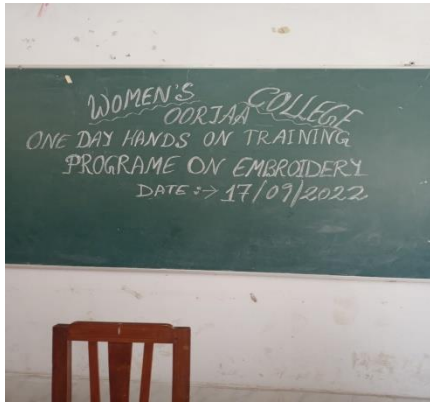 WOMEN'S COLLEGE
OORJAA
ONE DAY HANDS ON TRAINING
PROGRAME ON EMBROIDERY
DATE :→ 17/09/2022